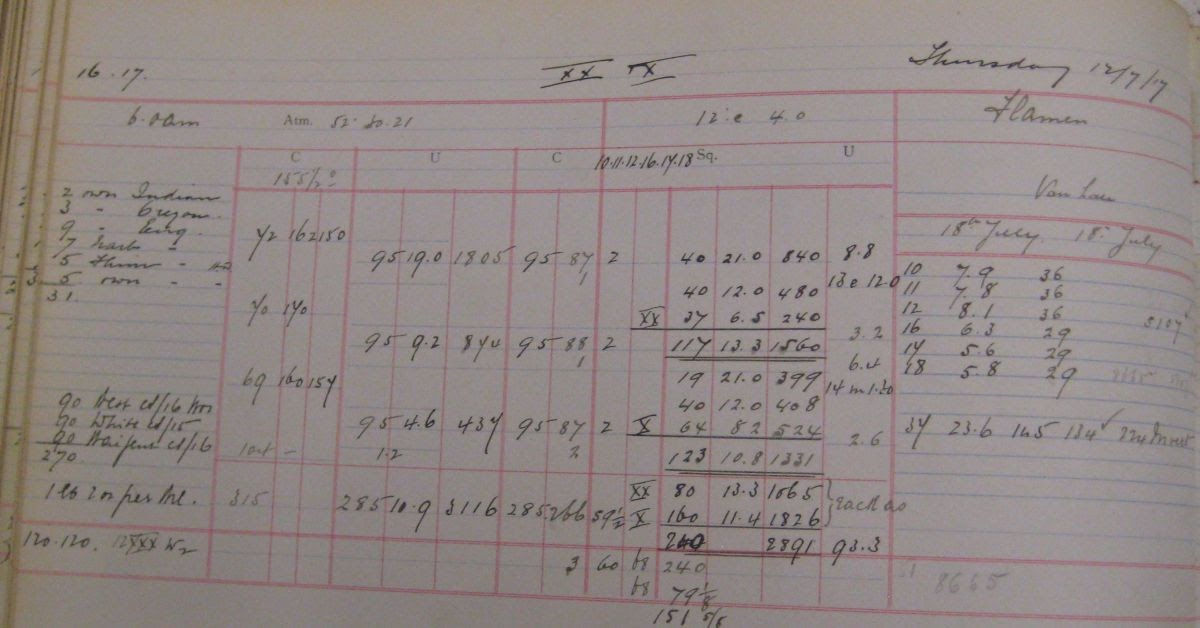 16 . 17.
XX X
Thursday 12/7/17
6.0am
Atm. 52. 50. 21
12.c 4.0
Flamen
C U C 10.11.12.16.17.18 Sq. U
155½°
Van Laer
18th July. 18th July
2 own Indian
3 " Oregon
9 " Eng.
5 own " "
31.
72 162 150
95 19.0 1805 95 87 2
40 21.0 840 8.8
40 12.0 480 13 c 12.0
70 170
XX 37 6.5 240
95 9.2 874 95 88 2
117 13.3 1560 3.2
10 7.9 36
11 7.8 36
12 8.1 36
16 6.3 29
17 5.6 29
18 5.8 29
69 160 154
19 21.0 399 6.4
40 12.0 408 14 m 1.30
90 West Cd/16
90 White Cd/15
270
95 4.6 437 95 87 2
X 64 8.2 524 2.6
1.2 2
123 10.8 1331
34 23.6 145 134
1 lb 2 oz per Brl.
315
285 10.9 3116 285 266 59½
XX 80 13.3 1065
X 160 11.4 1826
Each 20
120.120.
240 2891 93.3
3 60 68 240
68 79⅛
151 5/8
8665